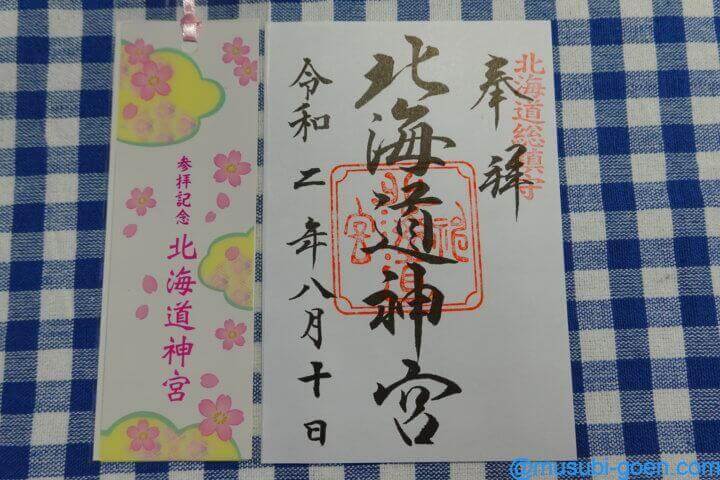 参拝記念
北海道神宮
北海道総鎮守
奉拝
北海道神宮
令和二年八月十日
@musubi-goen.com